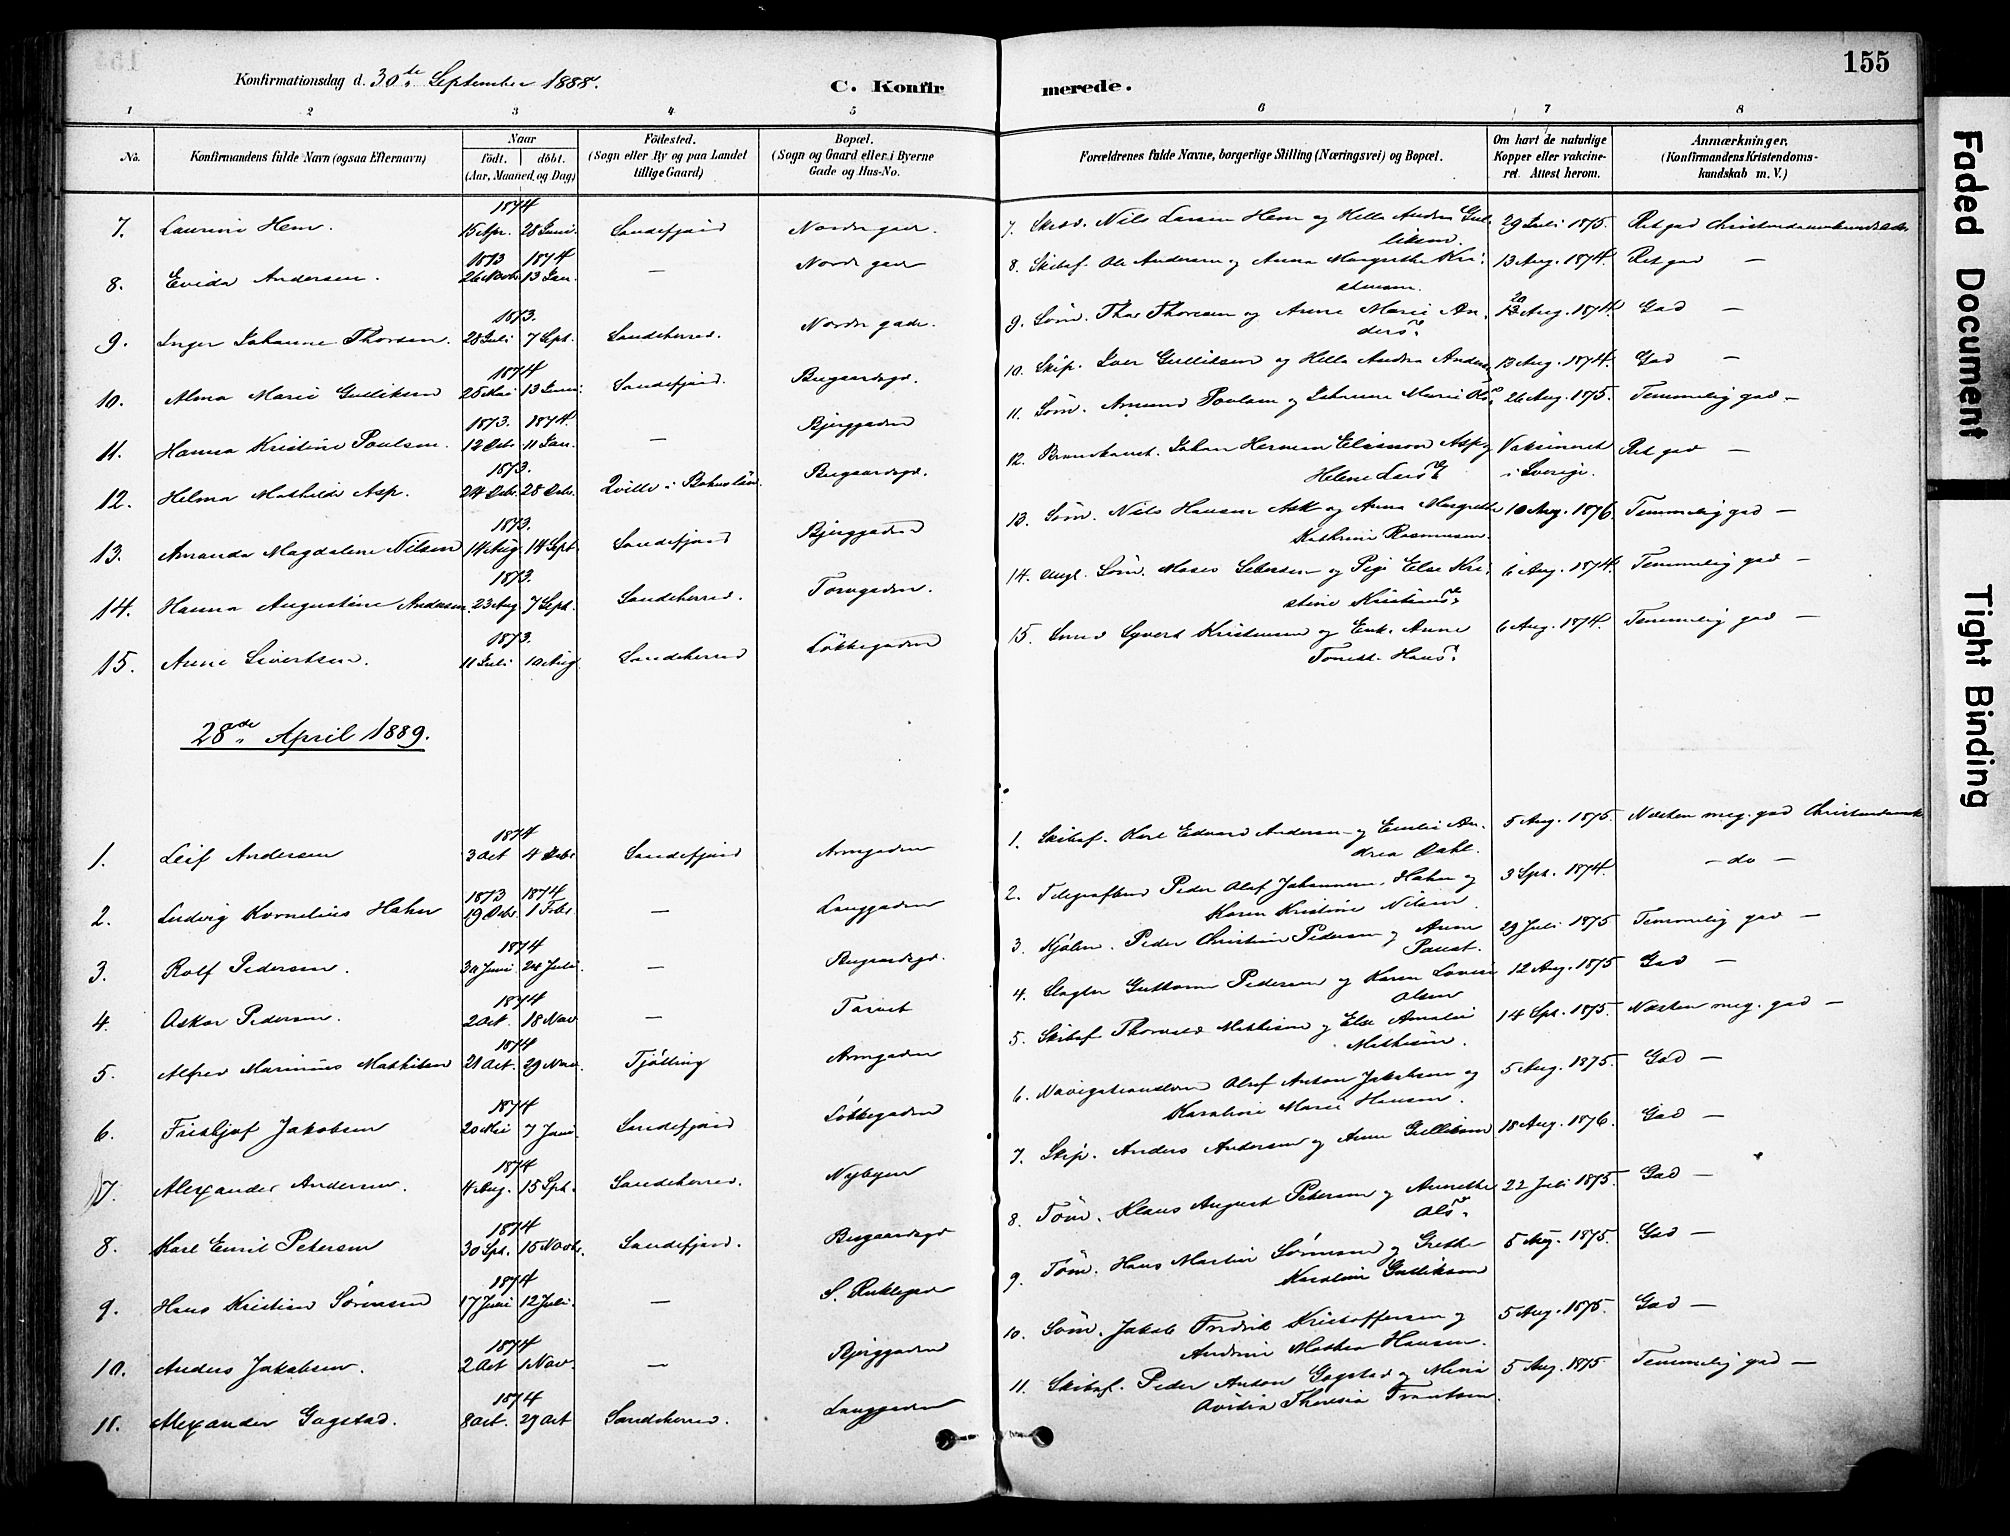 155
Konfirmationsdag d. 30te September 1888.
C. Konfirmerede.
1 2 3 4 5 6 7 8
No. Konfirmandens fulde Navn (ogsaa Efternavn) Naar födt. döbt. (Aar, Maaned og Dag) Födested. (Sogn eller By og paa Landet tillige Gaard) Bopæl. (Sogn og Gaard eller i Byerne Gade og Hus-No. Forældrenes fulde Navne, borgerlige Stilling (Næringsvei) og Bopæl. Om havt de naturlige Kopper eller vakcineret. Attest herom. Anmærkninger. (Konfirmandens Kristendomskundskab m. V.)
1874
7. Laurine Hem. 15 Apr. 28 Juni. Sandefjord Nordre gade. 7. Nils Larsen Hem og Helle Andrea Gulliksen. 29 Juli 1875. Ret god
1873 1874
8. Evida Andersen. 26 Novbr. 13 Jan. — Nordre gade 8. Skibsf. Ole Andersen og Anna Margrethe Kristensen. 13 Aug. 1874. Ret god —
1873.
9. Inger Johanne Thorsen. 28 Juli 7 Sept. Sandeherred. Nordre gade. 9. Söm. Thor Thorsen og Anne Marie Andersdr. 20 Aug. 1874. God —
1874
10. Alma Marie Gulliksen 25 Mai 13 Juni Sandefjord. Bugaardsgd. 10. Skip. Iver Gulliksen og Helle Andrea Anders 13 Aug. 1874. God —
1873. 1874.
11. Hanna Kristine Poulsen. 12 Octr. 11 Jan. — Bjerggaden 11. Söm. Amund Poulsen og Marie 26 Aug. 1875. Temmelig god —
1873.
12. Helma Mathilde Asp. 24 Octr. 28 Octr. Qville i Bohuslän. Bugaardsgd. 12. Johan Herman Eliasson Asp og Helene Larsdr. Vaksineret i Sverige. Ret god —
1873.
13. Amanda Magdalene Nilsen 14 Aug 14 Sept. Sandefjord Bjerggaden 13. Söm. Nils Hansen Ask og Anna Margrethe Kathrine Rasmussen. 10 Aug. 1876. Temmelig god —
1873.
14. Hanna Augustine Andersen. 23 Aug 7 Sept. Sandeherred. Torvgaden. 14. Ungk. Söm. Moses og Pige Else Kristine Kristiansdr. 6 Aug. 1874. Temmelig god —
1873.
15. Anne Sivertsen. 11 Juli 10 Aug. Sandeherred Lökkegaden 15. Syvert Kristensen og Enk. Anne Hansdr. 6 Aug. 1874. Temmelig god —
28de April 1889.
1874
1. Leif Andersen 3 Oct 4 Decbr Sandefjord Armgaden 1. Skibsf. Karl Edvard Andersen og Emilie Andrea Dahl. 5 Aug. 1875. Næsten meg. god Christendomsk
1873 1874
2. Ludvig Kornelius Hahn 19 Decbr. 1 Febr. — Langgaden 2. Peder Olaf Johannesen Hahn og Karen Kristine Nilsen. 3 Spt. 1874. — do —
1874
3. Rolf Pedersen. 30 Juni 24 Juli. — Bugaardsgd. 3. Peder Christian Pedersen og Anne Paust. 29 Juli 1875 Temmelig god —
1874
4. Oskar Pedersen. 2 Oct. 18 Nov — Torvet 4. Slagter Guttorm Pedersen og Karen Lovise Olsen 12 Aug. 1875 God —
1874
5. Alfred Marinius Mathisen 21 Oct. 29 Nov. Tjölling Armgaden 5. Skibsf. Thorvald Mathisen og Else Amalie Mathisen. 14 Spt. 1875. Næsten meg. god —
1874
6. Fridtjof Jakobsen 20 Mai 7 Juni. Sandefjord Lökkegaden 6. Olaf Anton Jakobsen og Karoline Marie Hansen. 5 Aug. 1875. God —
1874
7. Alexander Andersen. 4 Aug. 15 Spt. Sandeherred. Nybyen 7. Skip. Anders Andersen og Anne Gulliksen 18 Aug. 1876. God —
1874
8. Karl Emil Petersen 30 Spt. 15 Novbr. Sandefjord. Bugaardsgd 8. Töm. Klaus August Petersen og Annette Olsdr. 22 Juli 1875. God —
1874
9. Hans Kristian Sörensen 17 Juni 12 Juli. — 9. Töm. Hans Martin Sörensen og Grethe Karoline Gulliksen 5 Aug. 1875. God —
1874
10. Anders Jakobsen. 2 Oct 1 Nov. — Bjerggaden 10. Söm. Jakob Fredrik Kristoffersen og Andrine Mathea Hansen. 5 Aug. 1875. God —
1874
11. Alexander Gogstad. 8 Oct. 29 Oct Sandeherred. Langgaden 11. Skibsf. Peder Anton Gogstad og Mina Ovidia Theresia Frantsen. 5 Aug. 1875. Temmelig god —
Faded Document
Tight Binding